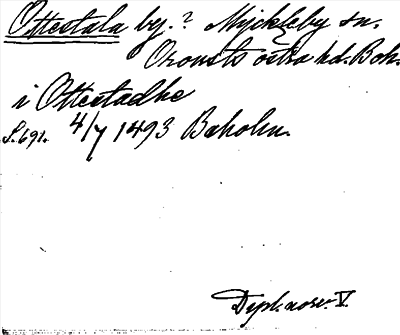 Ottestala by.? Myckleby sn.
Orousts östra hd. Boh.
i Ottestadhe
S. 691. 4/7 1493 Baholm.
Dipl. norv. V.